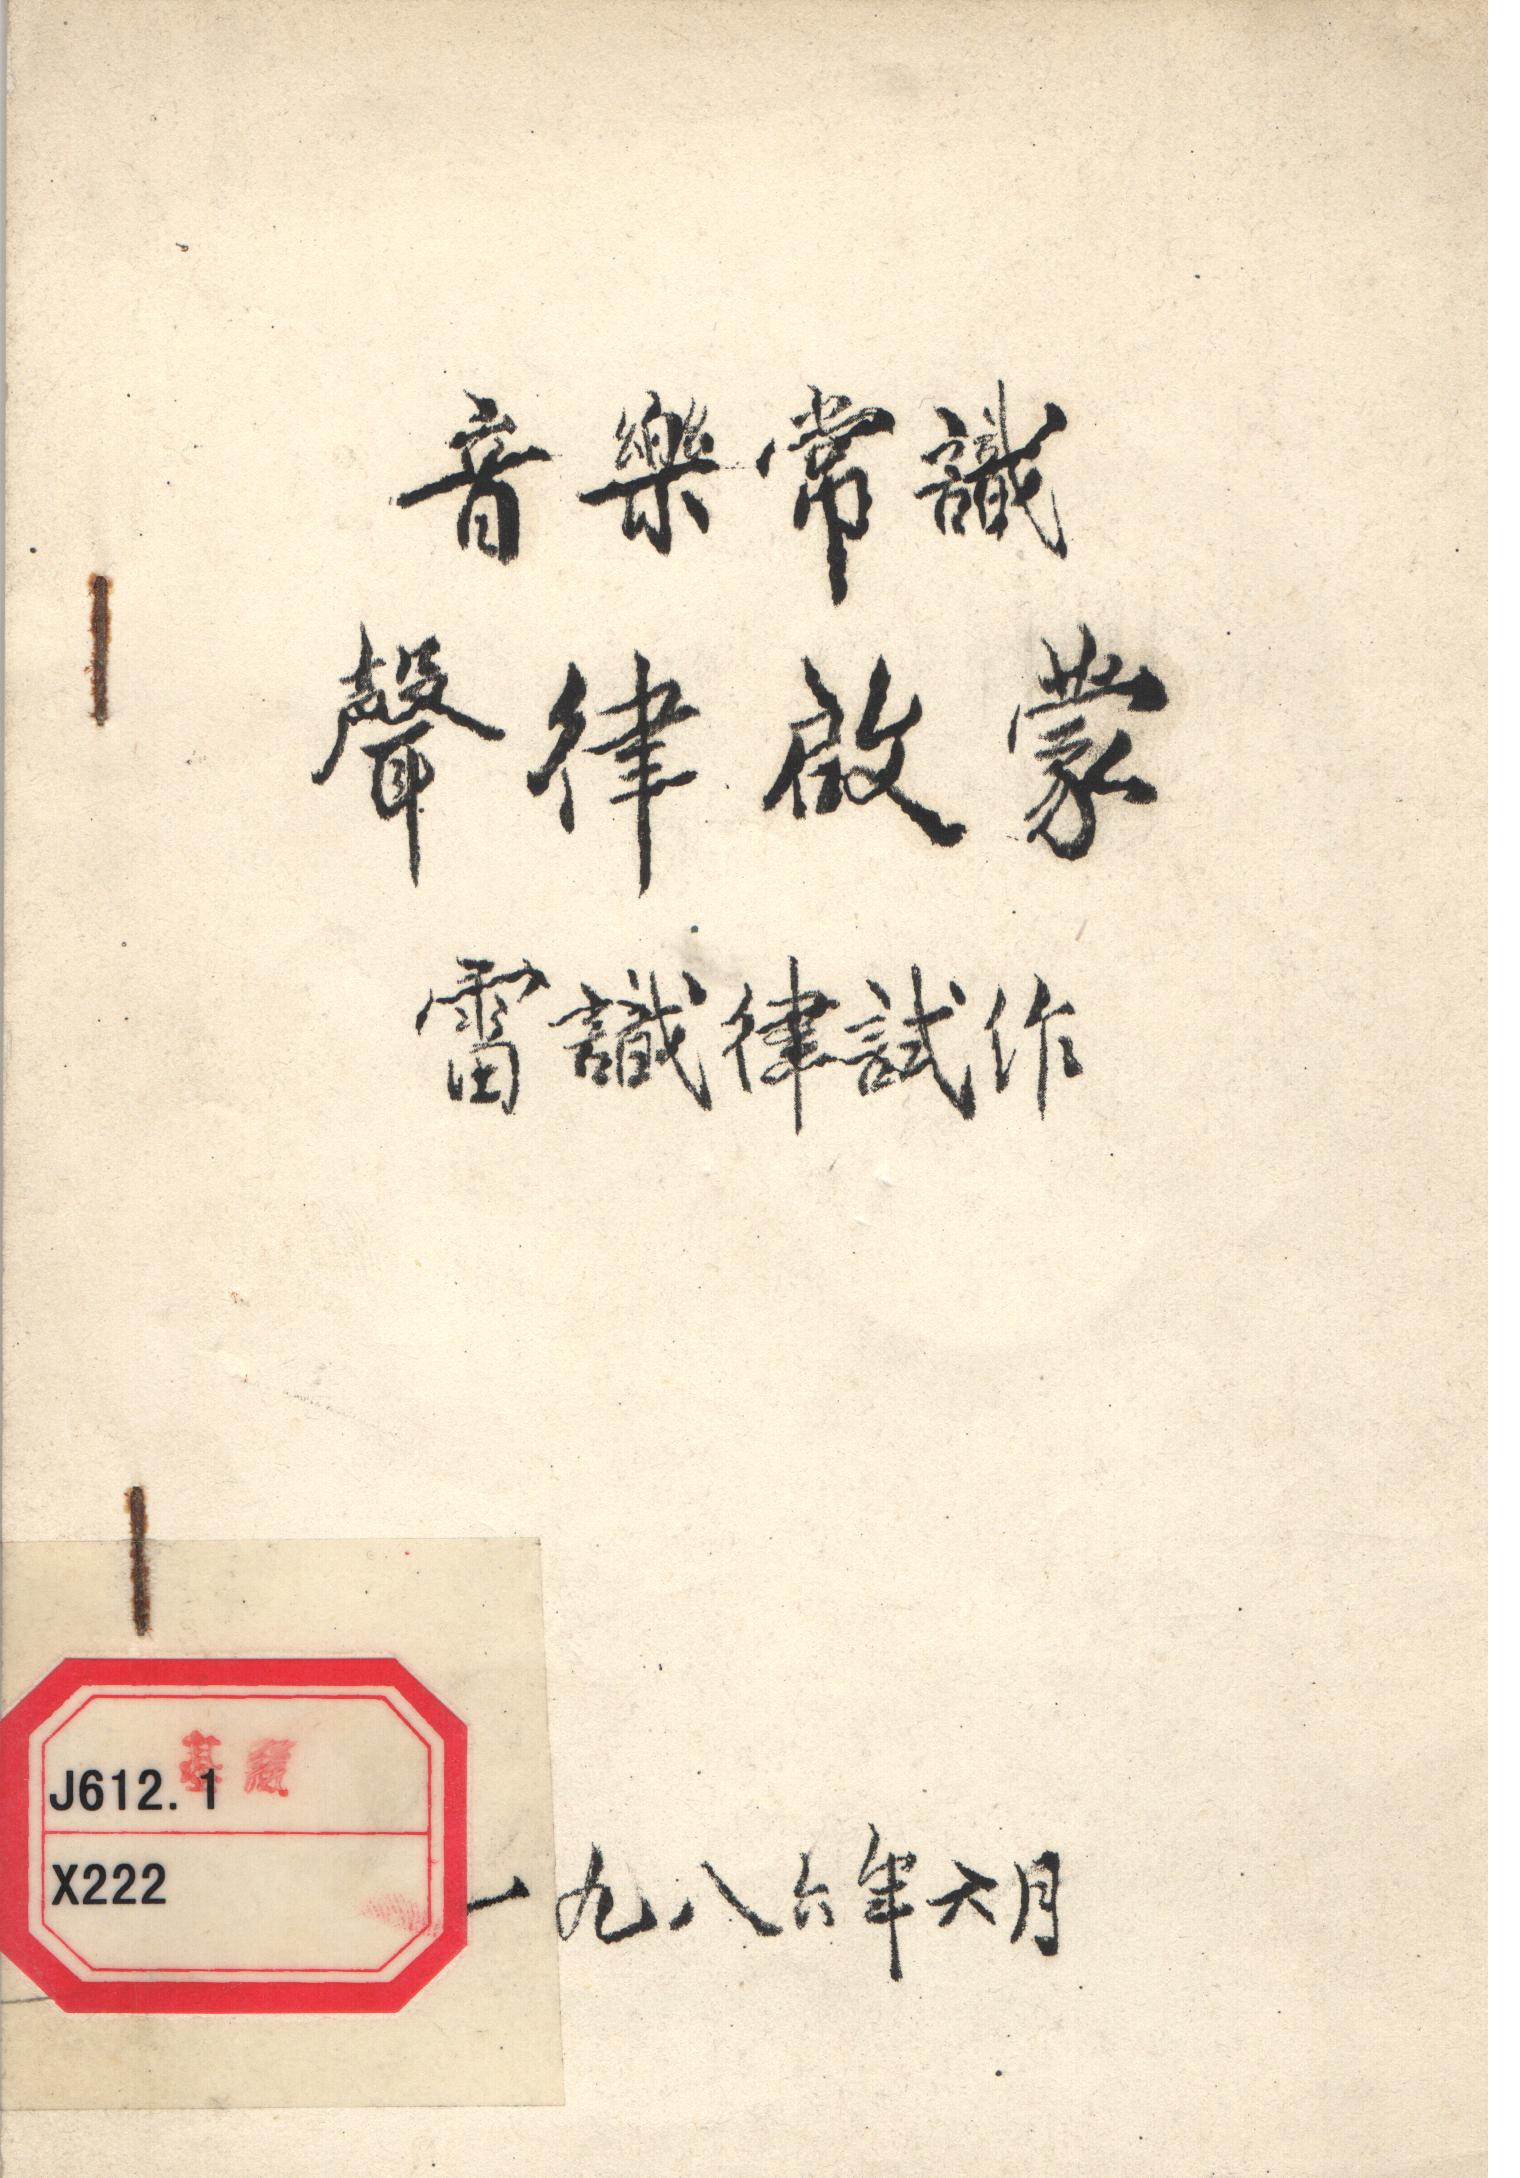 音樂常識
聲律啟蒙
雷識律試作
J612.1
X222
一九八六年六月